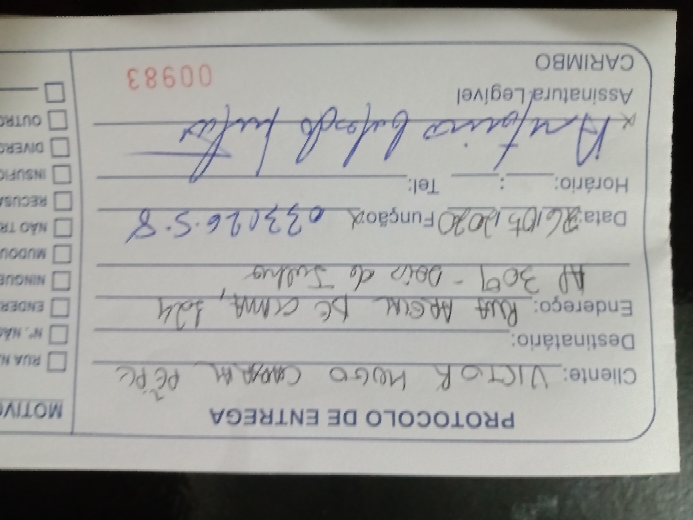 PROTOCOLO DE ENTREGA
Cliente: VICTOR HUGO
Destinatário:
Endereço: RUA AREAL DE CIMA, 124
AP 309 - Dois de Julho
Data: 26/05/2020 Função: 033026.5-8
Horário: : Tel:
Antonio
Assinatura Legível
CARIMBO
00983
MOTIV
RUA N
Nº. NÃ
ENDER
NINGUÉ
MUDOU
NÃO TR
RECUSA
INSUFIC
DIVERG
OUTRO